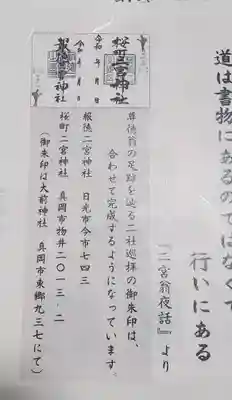 道は書物にあるのではなくて
行いにある
『二宮翁夜話』より
尊徳翁の足跡を辿る二社巡拝の御朱印は、
合わせて完成するようになっています。
報徳二宮神社　日光市今市七四三
桜町二宮神社　真岡市物井二〇一三‐二
（御朱印は大前神社　真岡市東郷九三七にて）
桜町二宮神社
令和　年　月　日
報徳二宮神社
令和　年　月　日